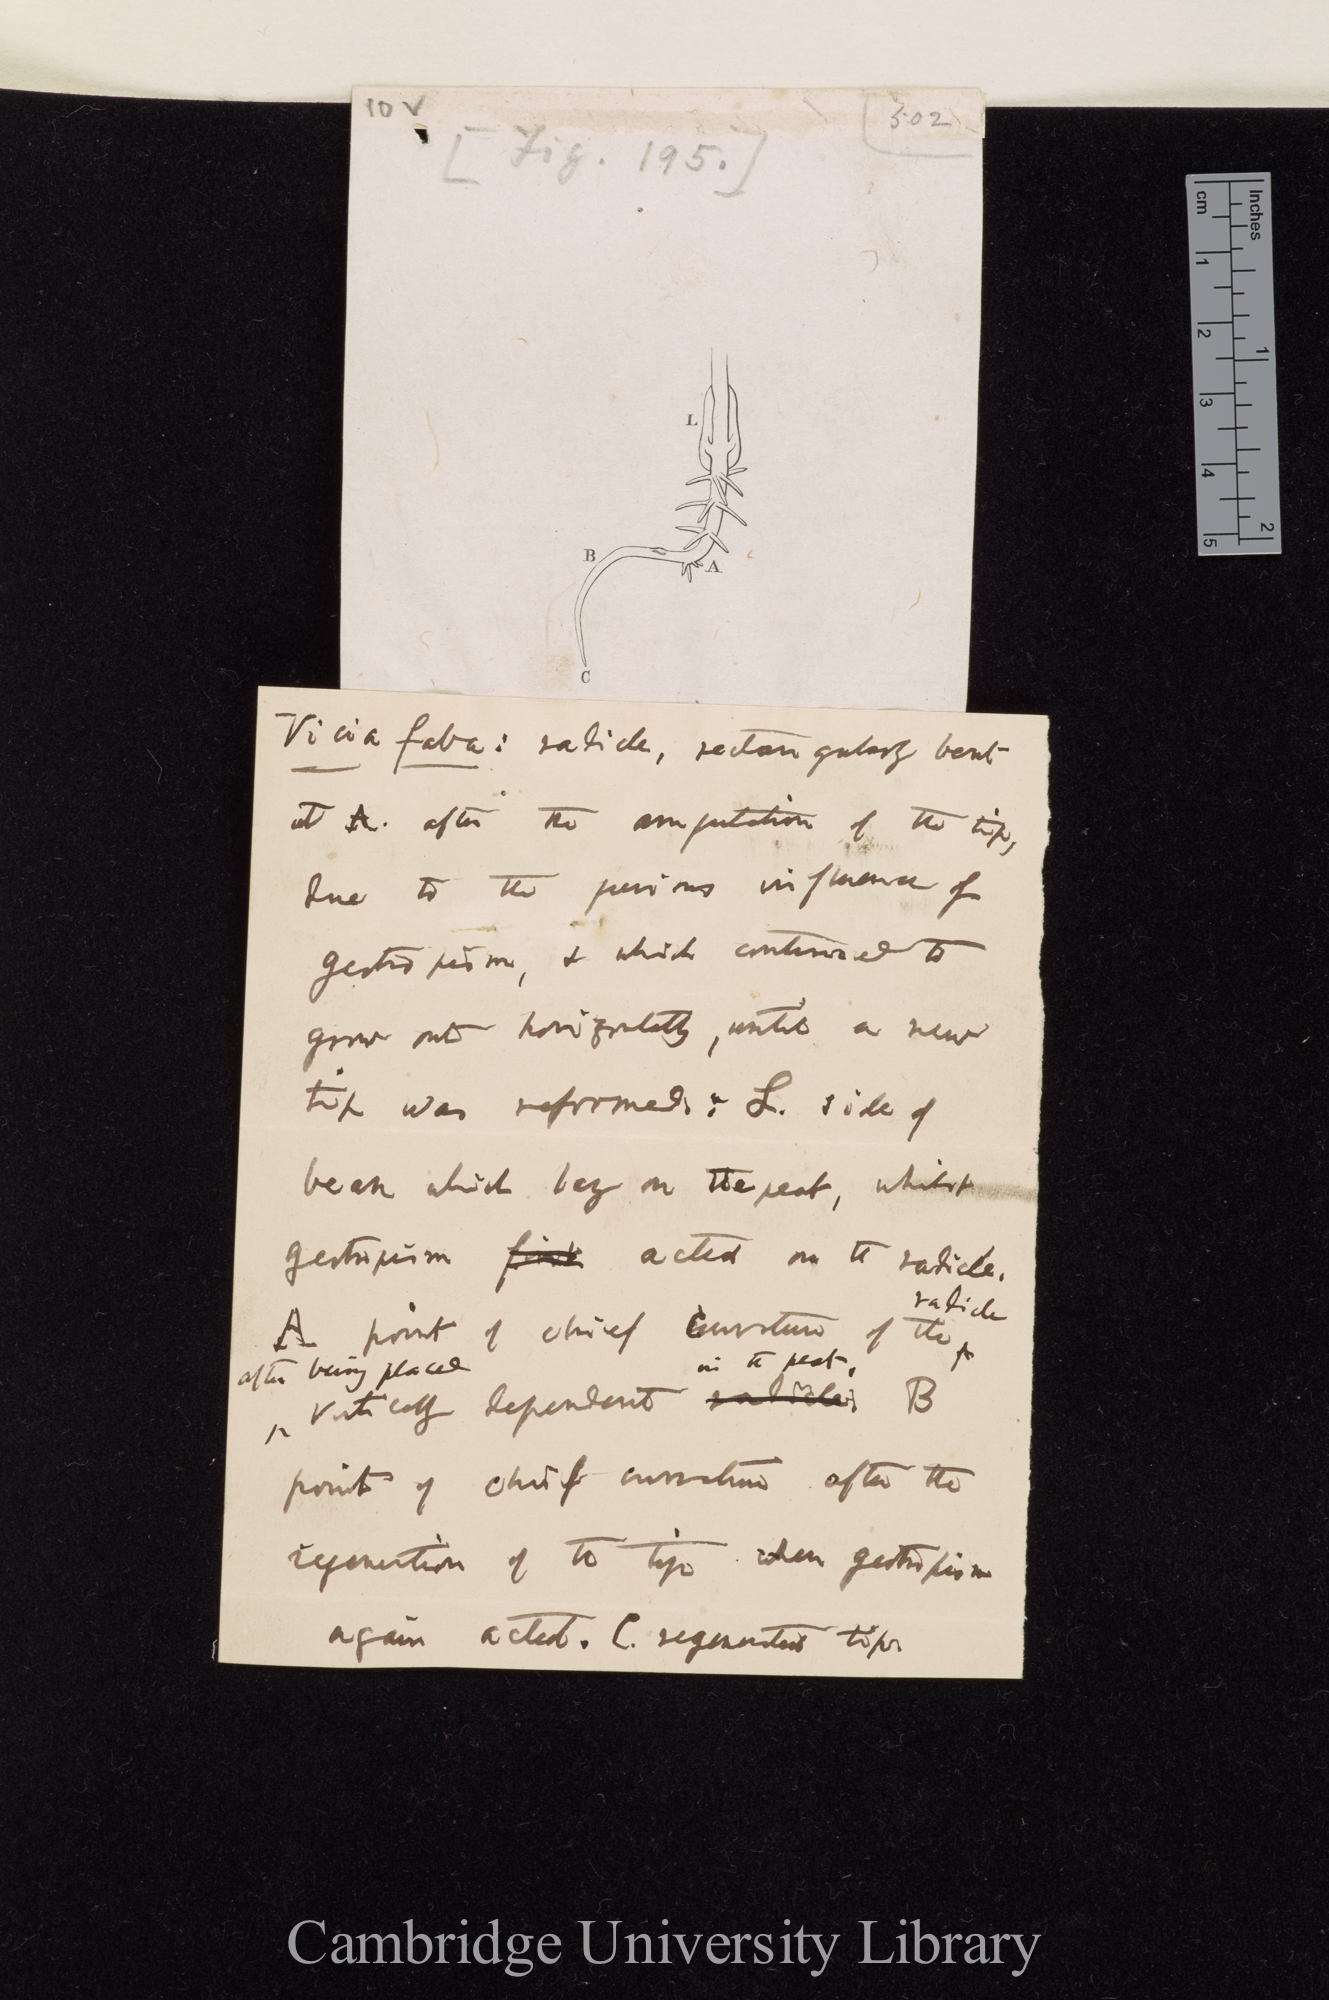 10 V
502
[Fig. 195.]
L
B
A
C
Vicia faba: radicle, rectangularly bent
at A. after the amputation of the tip,
due to the previous influence of
geotropism, & which continued to
grow out horizontally, until a new
tip was reformed: L. side of
bean which lay on the peat, whilst
geotropism first acted on the radicle.
radicle
A point of chief curvature of the
after being placed in the peat,
vertically dependent radicle; B
point of chief curvature after the
regeneration of the tip when geotropism
again acted. C. regenerated tip.
Inches
cm
1
2
3
4
5
1
2
Cambridge University Library